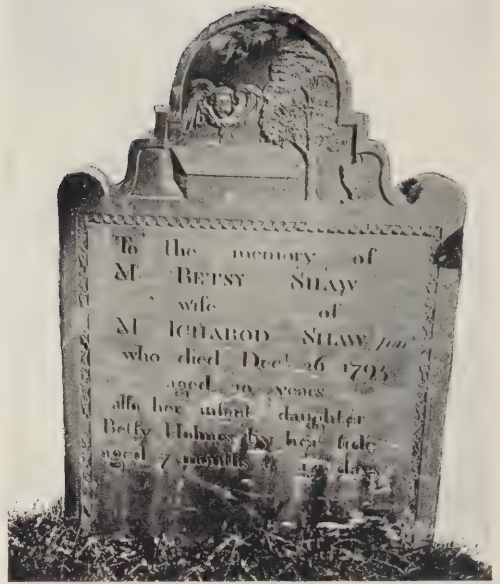 To the memory of
M BETSY SHAW
wife of
M ICHABOD SHAW jun
who died Dec 26 1795
aged years
also her infant daughter
Betsy Holmes by her side
aged 7 months days